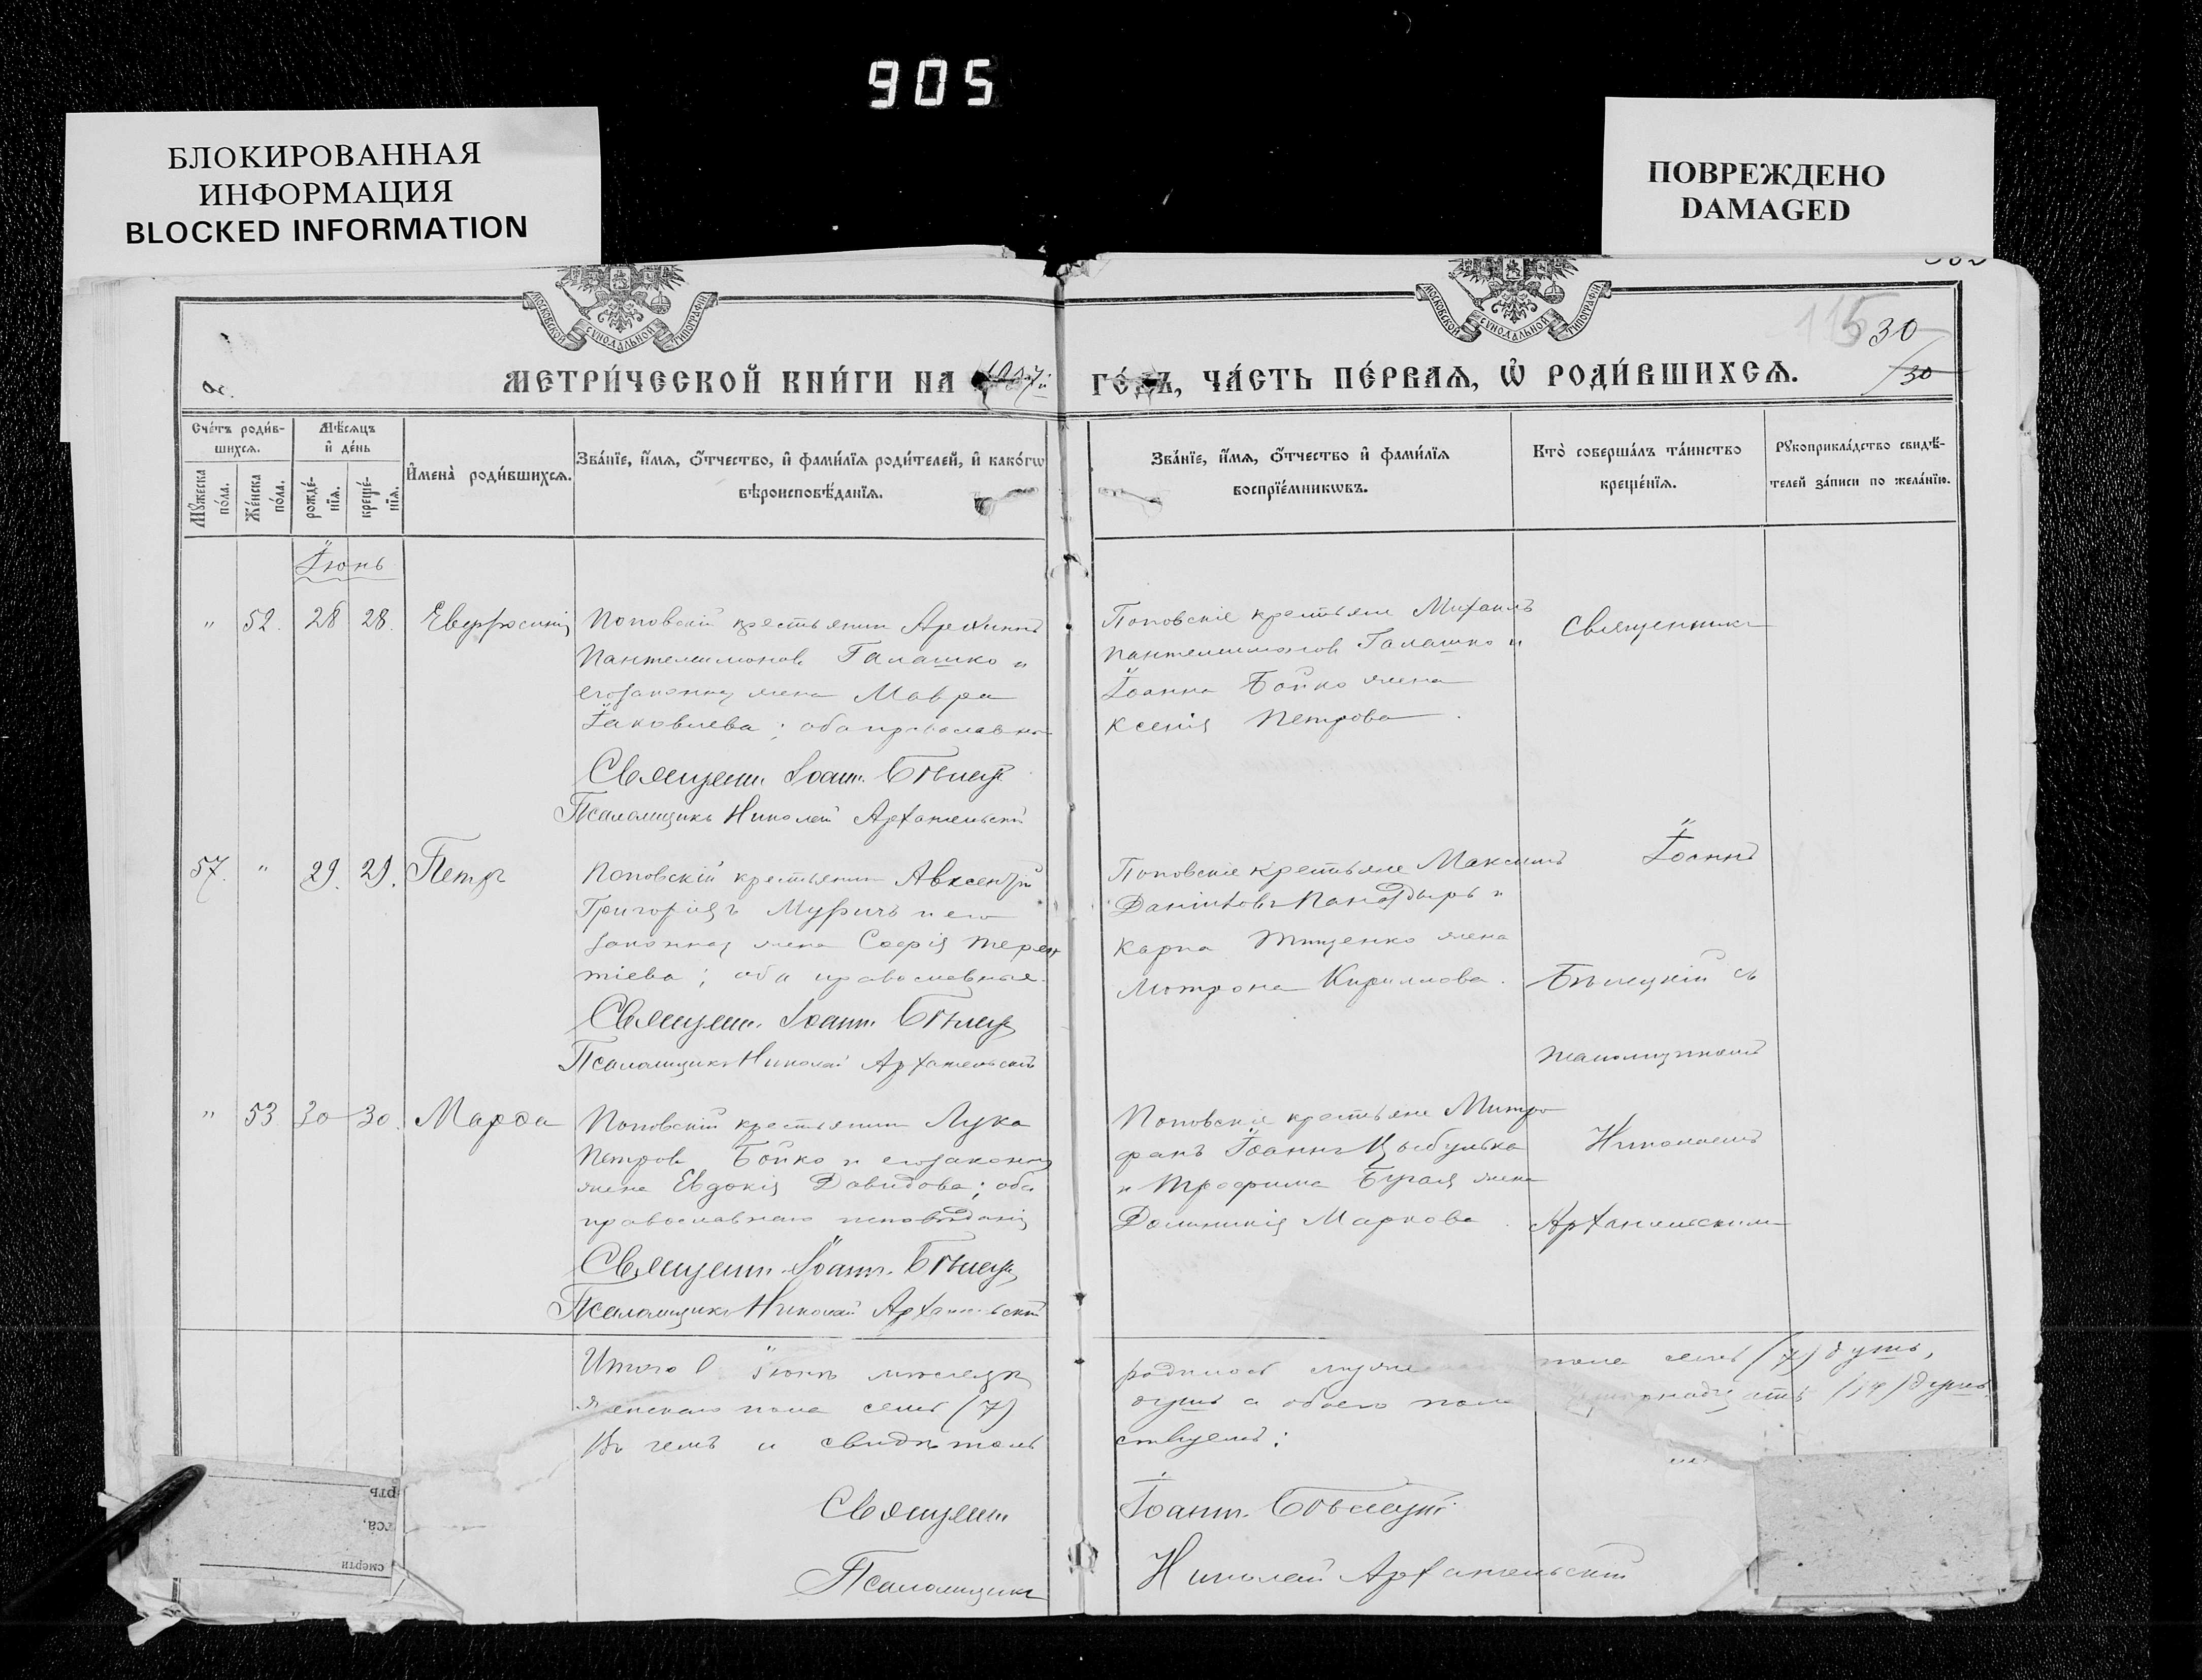 905
БЛОКИРОВАННАЯ
ИНФОРМАЦИЯ
BLOCKED INFORMATION
ПОВРЕЖДЕНО
DAMAGED
МОСКОВСКОЙ СѴНОДАЛЬНОЙ ТИПОГРАФІИ
МОСКОВСКОЙ СѴНОДАЛЬНОЙ ТИПОГРАФІИ
115 30
30
МЕТРИ́ЧЕСКОЙ КНИ́ГИ НА
ЧА́СТЬ ПЕ́РВАѦ, Ѡ҆ РОДИ́ВШИХСѦ.
Сче́тъ роди́в-
шихсѧ.
Мꙋжеска по́ла.
Же́нска по́ла.
Мѣ́сѧцъ
и҆ де́нь
рожде́-нїѧ.
креще́-нїѧ.
И҆мена̀ роди́вшихсѧ.
Зва́нїе, и҆́мѧ, ѻ҆́тчество, и҆ фами́лїѧ роди́телей, и҆ како́гѡ
вѣроисповѣ́данїѧ.
Зва́нїе, и҆́мѧ, ѻ҆́тчество и҆ фами́лїѧ
воспрїе́мникѡвъ.
Кто̀ соверша́лъ та́инство
креще́нїѧ.
Рꙋкоприкла́дство свидѣ́-
телей за́писи по жела́нїю.
Іюнь
" 52. 28 28. Евфросинія
Поповскій крестьянинъ
Пантелеимоновъ Галашко и
его законная жена Мавра
Іаковлева; оба православные
Священн. Іоанн. Бѣлец
Псаломщикъ Николай Архангельскій
Поповскіе крестьяне Михаилъ
Пантелеимоновъ Галашко и
Іоанна Бойко жена
Ксенія Петрова.
Священникъ
57. " 29. 29. Петръ
Поповскій крестьянинъ Авксентій
и его
законная жена Софія Терен
тіева; оба православные.
Священн. Іоанн. Бѣлец
Псаломщикъ Николай Архангельскій
Поповскіе крестьяне Максимъ
Карпа Тищенко жена
Мотрона Кириллова.
Іоаннъ
Бѣлецкій съ
псаломщикомъ
" 53 30 30. Марѳа
Поповскій крестьянинъ Лука
Петровъ Бойко и его законная
жена Евдокія Давидова; оба
православнаго исповѣданія
Священн. Іоанн. Бѣлец
Псаломщикъ Николай Архангельскій
Поповскіе крестьяне Митро
фанъ Іоанновъ Цыбулька
и Трофима Бугая жена
Домникія Маркова.
Николаемъ
Архангельскимъ
Итого въ Іюнѣ мѣсяцѣ родилось муже пола семь (7) душъ,
женскаго пола семь (7) душъ а обоего пола (14) душъ.
Въ чемъ и свидѣтель ствуемъ:
Священн. Іоанн. Бѣлецкій
Псаломщикъ Николай Архангельскій
рть
са,
смерти